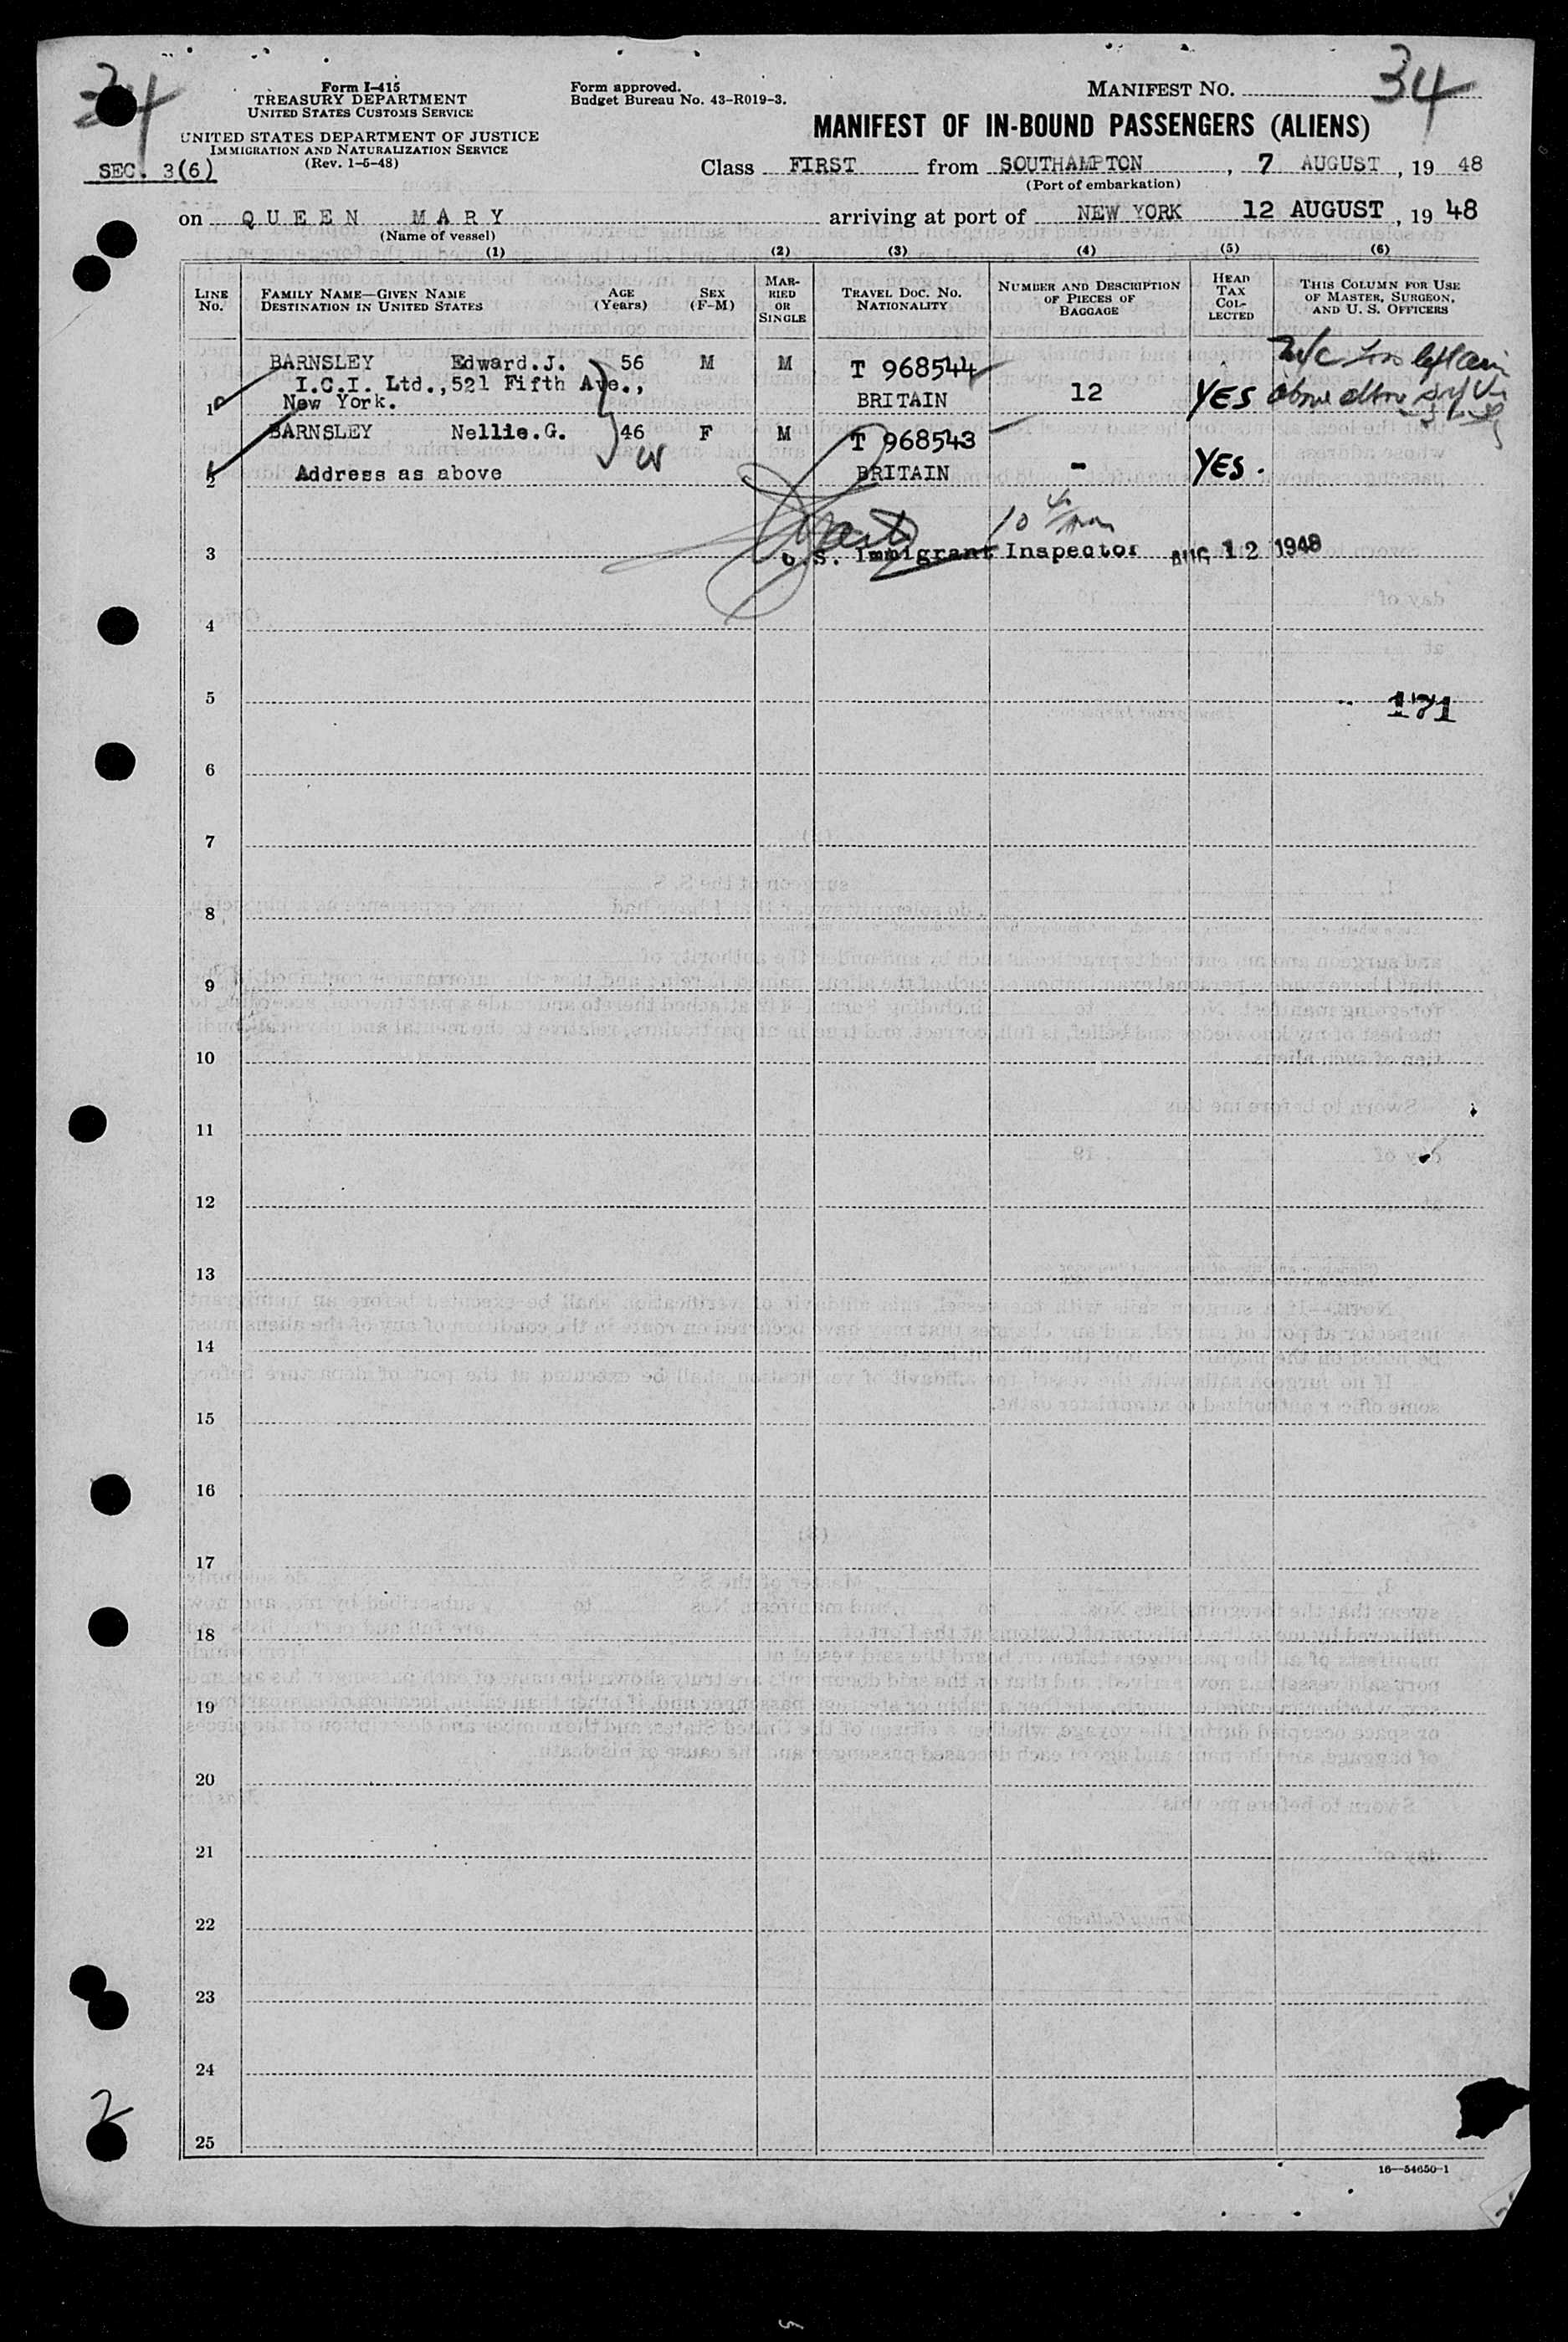 34
Form I-415
TREASURY DEPARTMENT
UNITED STATES CUSTOMS SERVICE
UNITED STATES DEPARTMENT OF JUSTICE
IMMIGRATION AND NATURALIZATION SERVICE
(Rev. 1-5-48)
SEC. 3(6)
Form approved.
Budget Bureau No. 43-R019-3.
MANIFEST NO. 34
MANIFEST OF IN-BOUND PASSENGERS (ALIENS)
Class FIRST from SOUTHAMPTON, 7 AUGUST, 19 48
(Port of embarkation)
on QUEEN MARY arriving at port of NEW YORK 12 AUGUST, 19 48
(Name of vessel)
(1) (2) (3) (4) (5) (6)
LINE No. FAMILY NAME—GIVEN NAME DESTINATION IN UNITED STATES AGE (Years) SEX (F-M) MARRIED OR SINGLE TRAVEL DOC. NO. NATIONALITY NUMBER AND DESCRIPTION OF PIECES OF BAGGAGE HEAD TAX COLLECTED THIS COLUMN FOR USE OF MASTER, SURGEON, AND U. S. OFFICERS
BARNSLEY Edward.J. 56 M M T 968544
I.C.I. Ltd.,521 Fifth Ave.,
1 New York. BRITAIN 12 YES
BARNSLEY Nellie.G. 46 F M T 968543
2 Address as above BRITAIN - YES.
3 U.S. Immigrant Inspector AUG 12 1948
4
5 171
6
7
8
9
10
11
12
13
14
15
16
17
18
19
20
21
22
23
24
2
25
16—54650-1